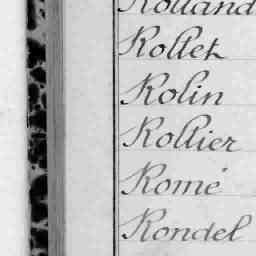 Rolland
Rollet
Rolin
Rollier
Romé
Rondel